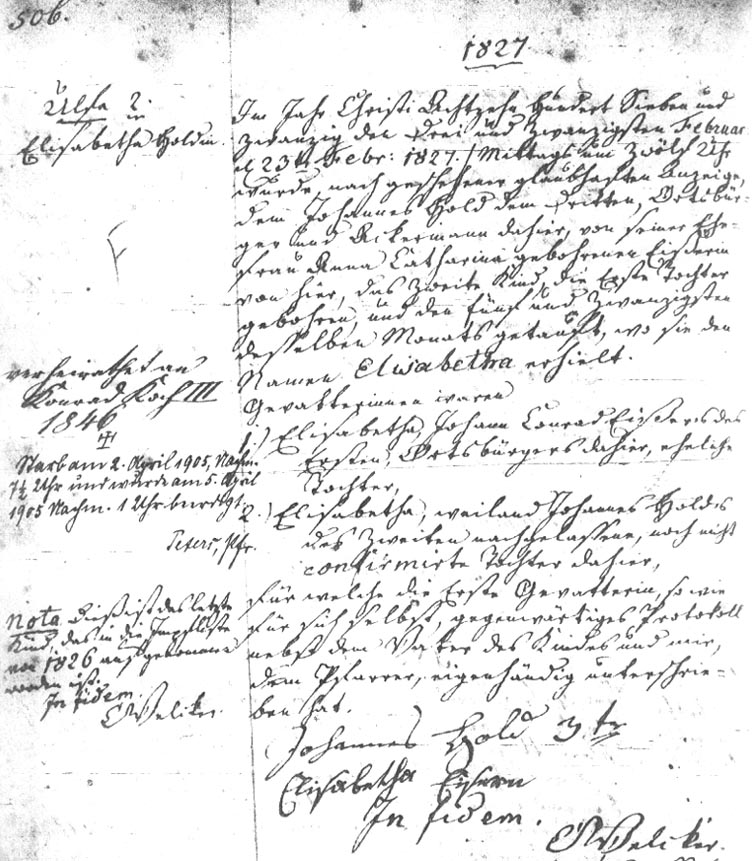 506.
1827
Ulfa 2.
Elisabetha Holdin.
Im Jahr Christi Achtzehn Hundert Sieben und
zwanzig den Drei und zwanzigsten Februar
23ten Febr: 1827. / Mittags um zwölf Uhr
wurde, nach geschehener glaubhaften Anzeige,
dem Johannes Hold dem Dritten, Ortsbür-
ger und Ackermann dahier, von seiner Ehe-
frau Anna Catharina gebohrenen
von hier, das Zweite Kind, die Erste Tochter
gebohren, und den fünf und zwanzigsten
desselben Monats getauft, wo sie den
Namen Elisabetha erhielt.
Gevatterinnen waren
1.) Elisabetha, Johann Conrad des
Ersten, Ortsbürgers dahier, eheliche
Tochter,
2.) Elisabetha, weiland Johannes Holds
des Zweiten nachgelassene, noch nicht
confirmirte Tochter dahier,
für welche die Erste Gevatterin, so wie
für sich selbst, gegenwärtiges Protokoll
nebst dem Vater des Kindes und mir,
dem Pfarrer, eigenhändig unterschrie-
ben hat.
Johannes Hold 3ter
Elisabetha
In fidem.
verheirathet an
Konrad Koch III
1846
Starb am 2. April 1905, Nachm.
7½ Uhr und wurde am 5. April
1905 Nachm. 1 Uhr beerdigt.
Peters, Pfr.
Nota Dieß ist das letzte
Kind, das in die Impfliste
von 1826 aufgenommen
worden ist.
In fidem.